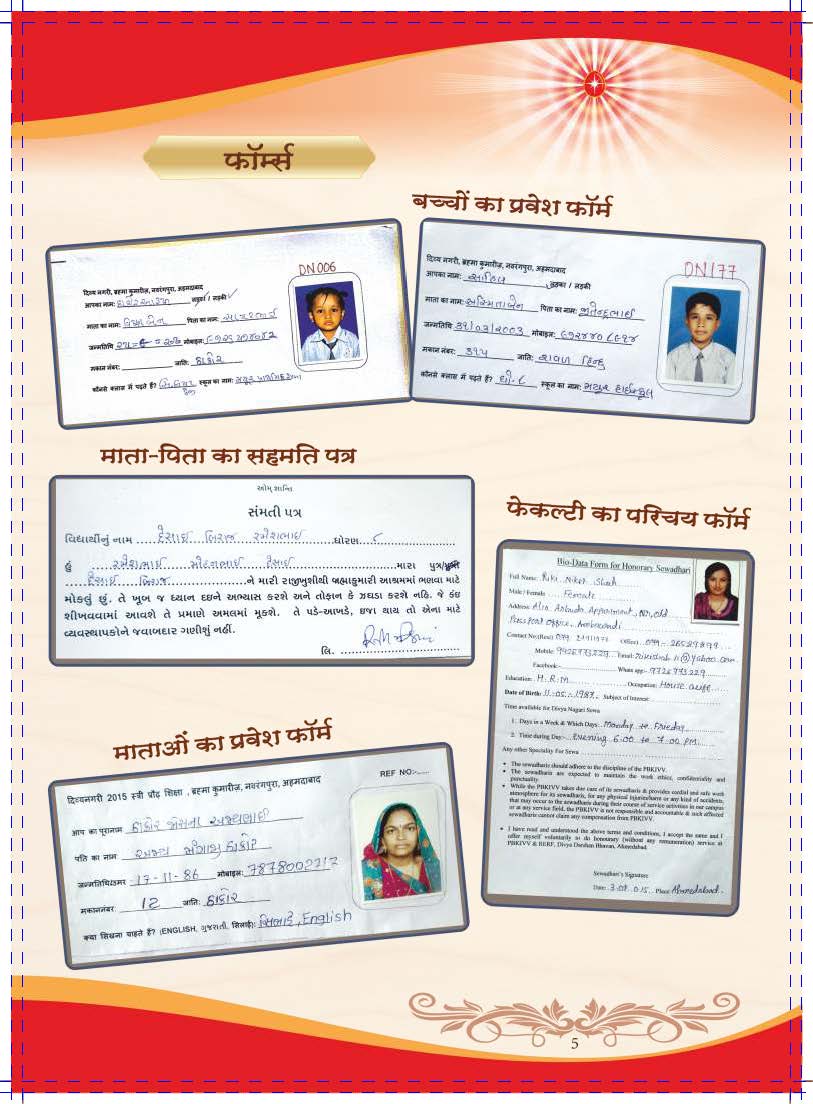 फॉर्म्स
बच्चों का प्रवेश फॉर्म
DN 006
दिव्य नगरी, ब्रह्मा कुमारीज़, नवरंगपुरा, अहमदाबाद
आपका नाम: लड़का / लड़की
माता का नाम: पिता का नाम:
जन्मतिथि मोबाइल:
मकान नंबर: जाति: ઠાકોર
कौनसे क्लास में पढ़ते हैं? स्कूल का नाम:
DN177
दिव्य नगरी, ब्रह्मा कुमारीज़, नवरंगपुरा, अहमदाबाद
आपका नाम: लड़का / लड़की
माता का नाम: અસ્મિતાબેન पिता का नाम: જીતેન્દ્રભાઈ
जन्मतिथि ૩૧/૦૨/૨૦૦૩ मोबाइल:
मकान नंबर: ૩૧૫ जाति: રાવળ હિન્દુ
कौनसे क्लास में पढ़ते हैं? ધો-૮ स्कूल का नाम: મયુર હાઈસ્કૂલ
माता-पिता का सहमति पत्र
ઓમ્ શાન્તિ
સંમતી પત્ર
વિદ્યાર્થીનું નામ દેસાઈ બિરજુ રમેશભાઈ ધોરણ ૮
હું રમેશભાઈ મોહનભાઈ દેસાઈ મારા પુત્ર/પુત્રી
દેસાઈ બિરજુ ને મારી રાજીખુશીથી બ્રહ્માકુમારી આશ્રમમાં ભણવા માટે
મોકલું છું. તે ખૂબ જ ધ્યાન દઇને અભ્યાસ કરશે અને તોફાન કે ઝઘડા કરશે નહિ. જે કંઇ
શીખવવામાં આવશે તે પ્રમાણે અમલમાં મૂકશે. તે પડે-આખડે, ઇજા થાય તો એના માટે
વ્યવસ્થાપકોને જવાબદાર ગણીશું નહીં.
લિ.
फेकल्टी का परिचय फॉर्म
Bio-Data Form for Honorary Sewadhari
Full Name: Riki Niket Shah
Male / Female Female
Address: A/10 Arbuda Appartment, Nr, old
Passport Office, Ambawadi
Contact No:(Resi) Office)
Mobile: Email:
Facebook: Whats app:- 9726773229
Education: H.R.M Occupation: House wife
Date of Birth: 11-05-1987 Subject of Interest:
Time available for Divya Nagari Sewa
1. Days in a Week & Which Days:- Monday to Frieday
2. Time during Day:- Evening 6:00 to 7:00 PM
Any other Speciality For Sewa
• The sewadharis should adhere to the discipline of the PBKIVV.
• The sewadharis are expected to maintain the work ethic, confidentiality and
punctuality.
• While the PBKIVV takes due care of its sewadharis & provides cordial and safe work
atmosphere for its sewadharis, for any physical injuries/harm or any kind of accidents,
that may occur to the sewadharis during their course of service activities in our campus
or at any service field, the PBKIVV is not responsible and accountable & such affected
sewadharis cannot claim any compensation from PBKIVV.
• I have read and understood the above terms and conditions, I accept the same and I
offer myself voluntarily to do honourary (without any remuneration) service at
PBKIVV & RERF, Divya Darshan Bhavan, Ahmedabad.
Sewadhari's Signature
Date: Place: Ahmedabad.
माताओं का प्रवेश फॉर्म
REF NO:-
दिव्यनगरी 2015 स्त्री प्रौढ़ शिक्षा , ब्रह्मा कुमारीज़, नवरंगपुरा, अहमदाबाद
आप का पूरानाम
पति का नाम
जन्मतिथि/उमर 17-11-86 मोबाइल: 7878002212
मकाननंबर: 12 जाति: ઠાકોર
क्या सिखना चाहते हैं? (ENGLISH, ગુજરાતી, सिलाई): સિલાઈ, English
5